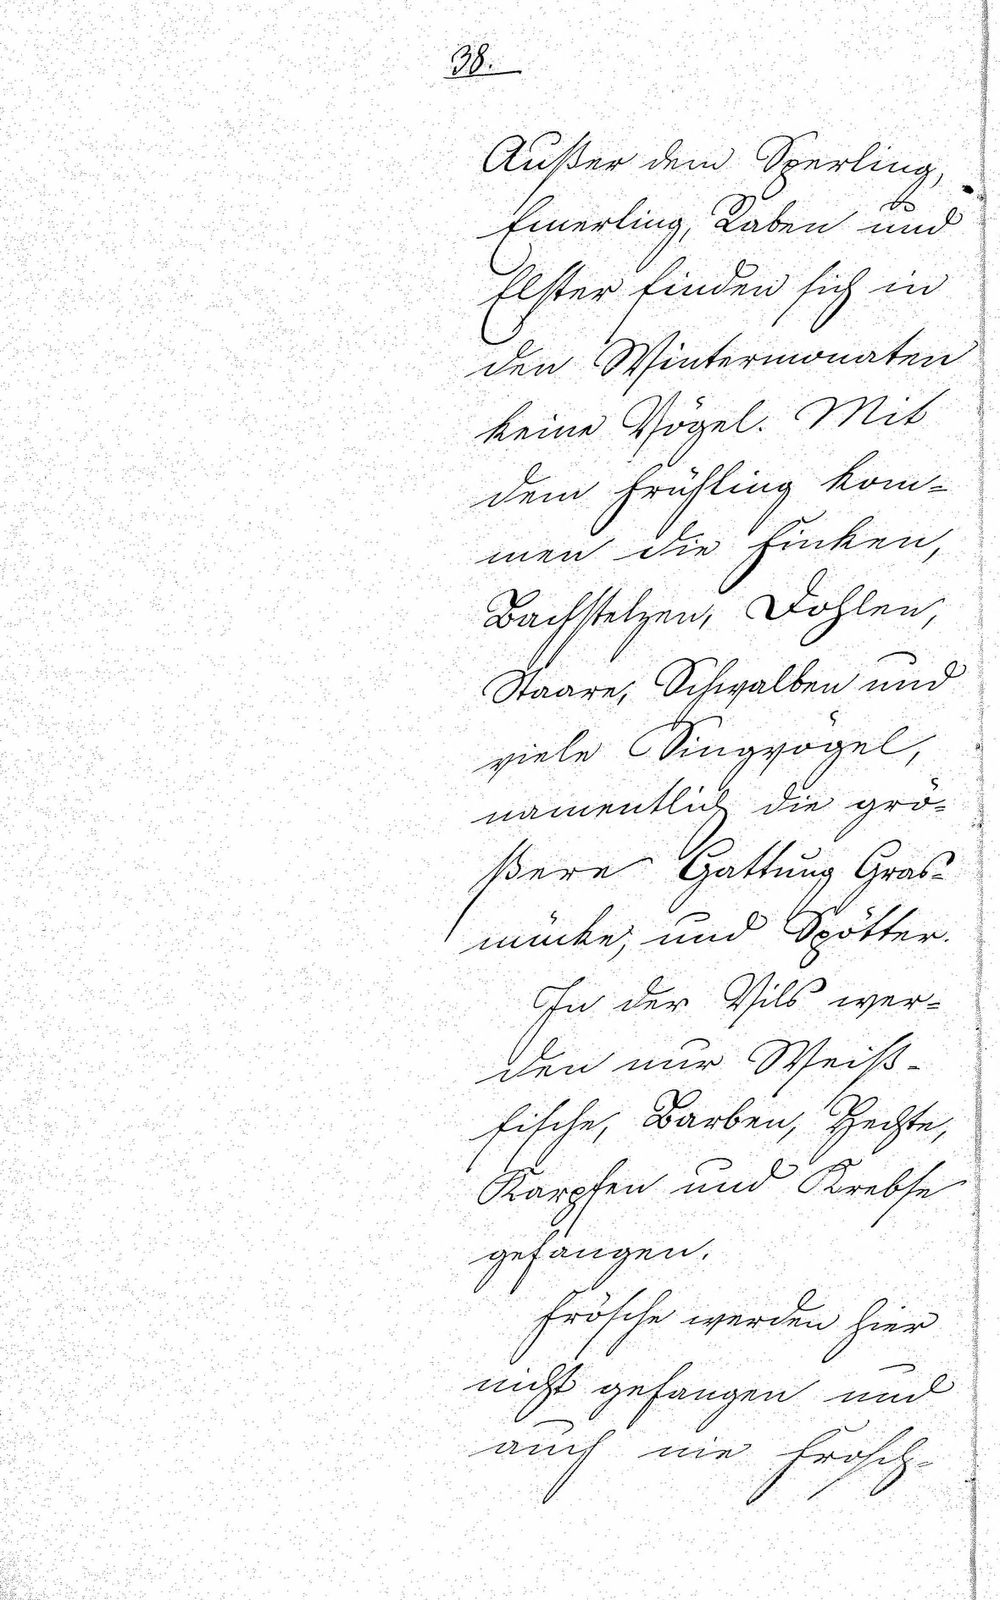 38.
Außer dem Sperling,
Emerling, Raben und
Elster finden sich in
den Wintermonaten
keine Vögel. Mit
dem Frühling kom-
men die Finken,
Bachstelzen, Dohlen,
Staare, Schwalben und
viele Singvögel,
namentlich die grö-
ßere Gattung Gras-
mücke, und Spötter.
In der Vils wer-
den nur Weiß-
fische, Barben, Hechte,
Karpfen und Krebse
gefangen.
Frösche werden hier
nicht gefangen und
auch nie Frosch-